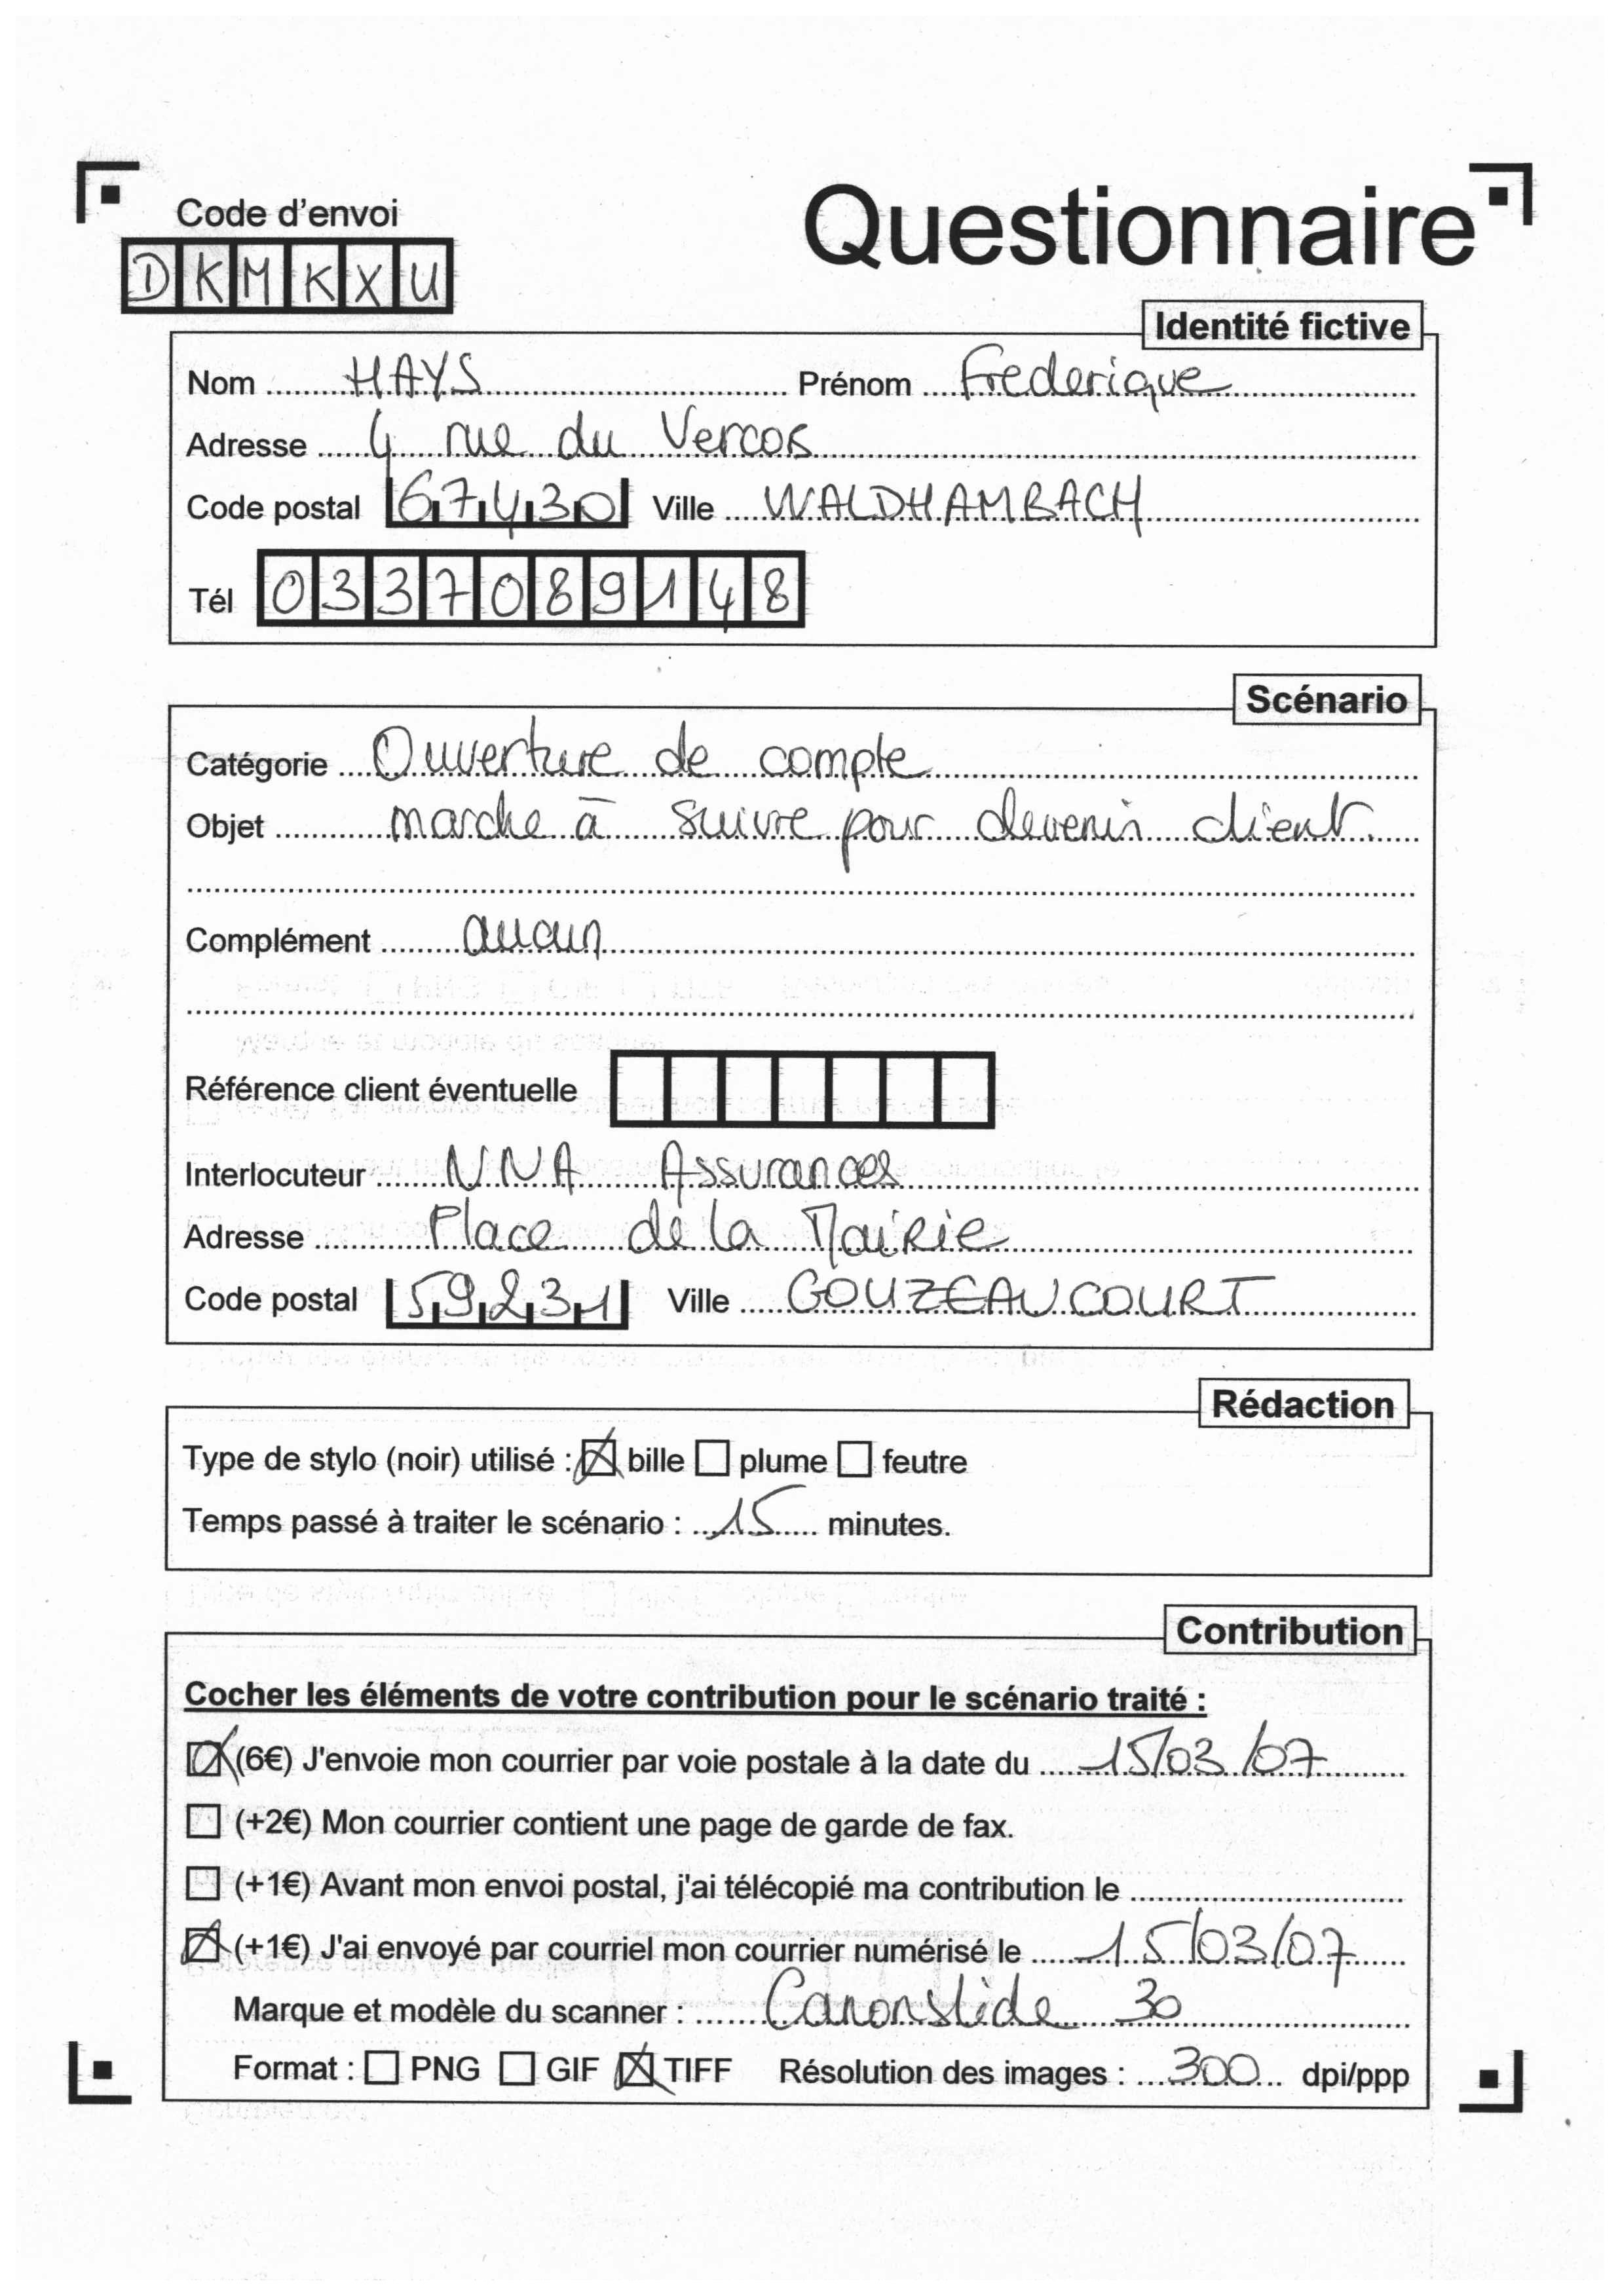 Code d'envoi
Questionnaire
DKMKXU
Identité fictive
Nom HAYS Prénom Frederique
Adresse 4 rue du Vercos
Code postal 67430 Ville WALDHAMBACH
Tél 0337089148
Scénario
Catégorie Ouverture de compte
Objet marche à suivre pour devenir client.
Complément aucun
Référence client éventuelle
Interlocuteur NNA Assurances
Adresse Place de la Mairie
Code postal 59231 Ville GOUZEAUCOURT
Rédaction
Type de stylo (noir) utilisé : bille plume feutre
Temps passé à traiter le scénario : 15 minutes.
Contribution
Cocher les éléments de votre contribution pour le scénario traité :
(6€) J'envoie mon courrier par voie postale à la date du 15/03/07
(+2€) Mon courrier contient une page de garde de fax.
(+1€) Avant mon envoi postal, j'ai télécopié ma contribution le
(+1€) J'ai envoyé par courriel mon courrier numérisé le 15/03/07
Marque et modèle du scanner : Canonslide 30
Format : PNG GIF TIFF Résolution des images : 300 dpi/ppp